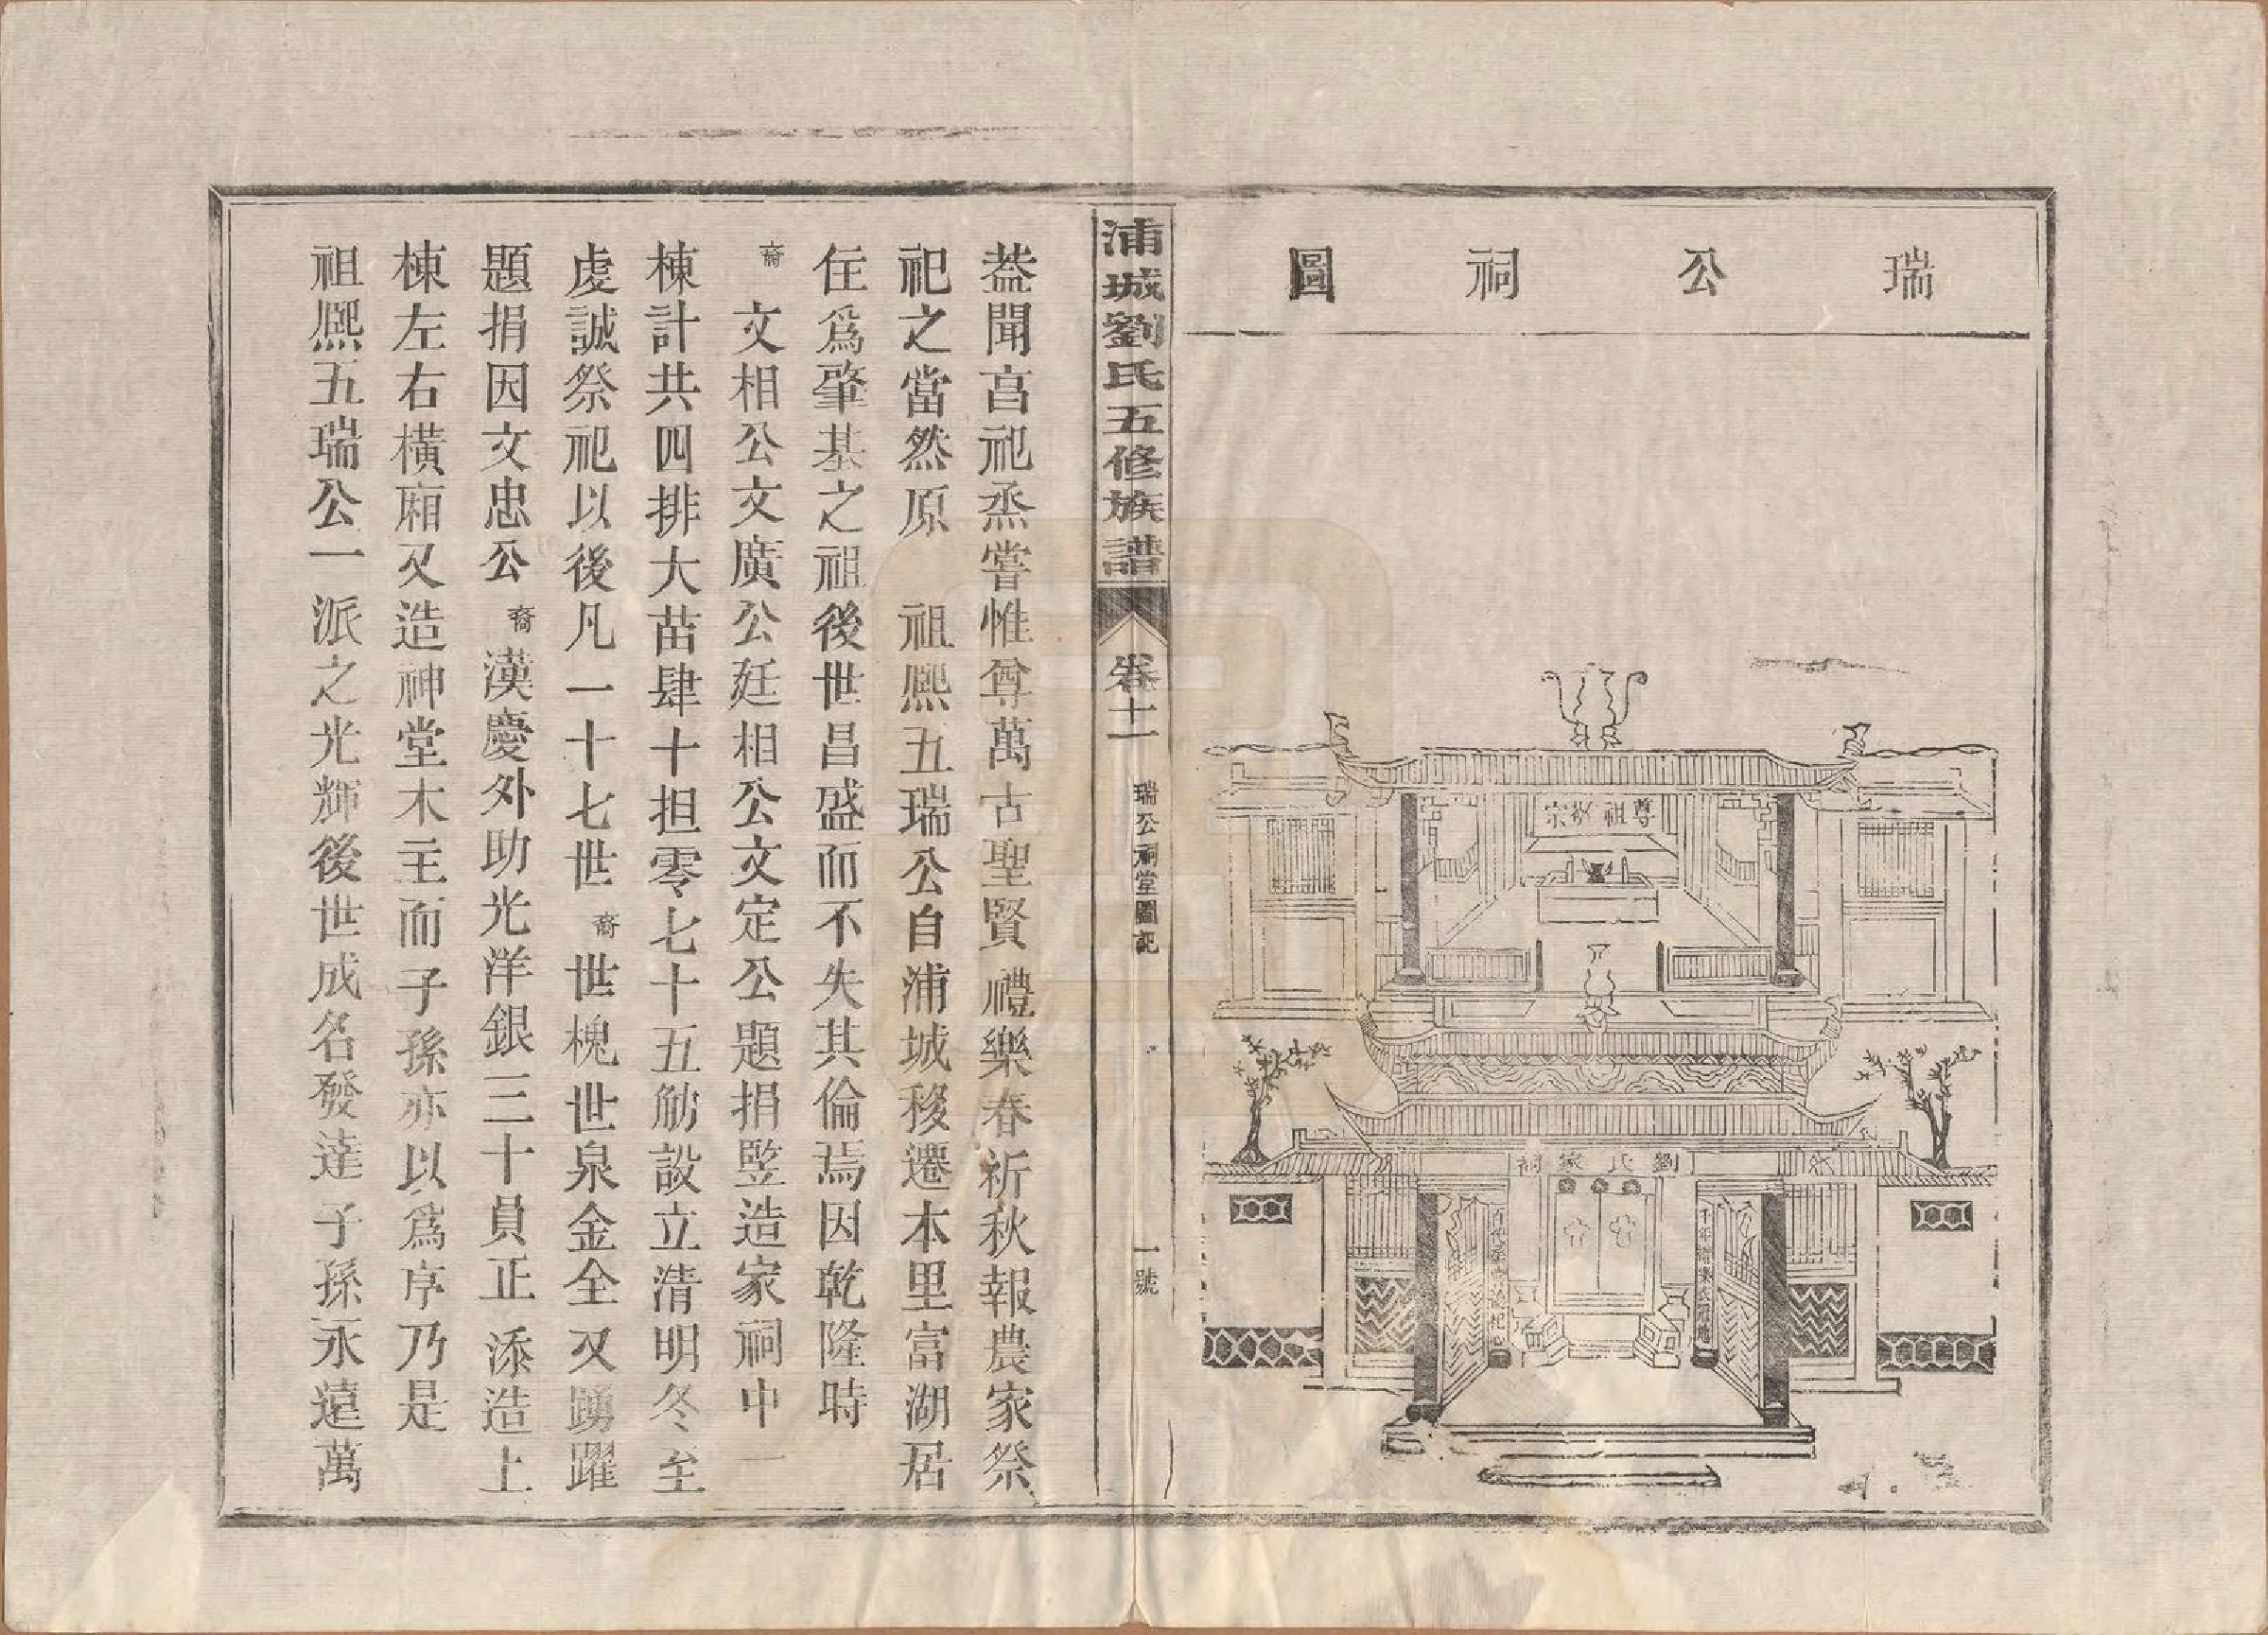 瑞公祠圖
尊祖敬宗
劉氏家祠
浦城劉氏五修族譜
卷十一
瑞公祠堂圖記
一號
葢聞享祀烝嘗惟尊萬古聖賢禮樂春祈秋報農家祭
祀之當然原 祖熈五瑞公自浦城移遷本里富湖居
住爲肇基之祖後世昌盛而不失其倫焉因乾隆時
裔 文相公文廣公廷相公文定公題捐竪造家祠中一
棟計共四排大苗肆十担零七十五觔設立清明冬至
虔誠祭祀以後凡一十七世裔世槐世泉金全又踴躍
題捐因文忠公裔漢慶外助光洋銀三十員正添造上
棟左右橫廂又造神堂木主而子孫亦以爲序乃是
祖熈五瑞公一派之光輝後世成名發達子孫永遠萬